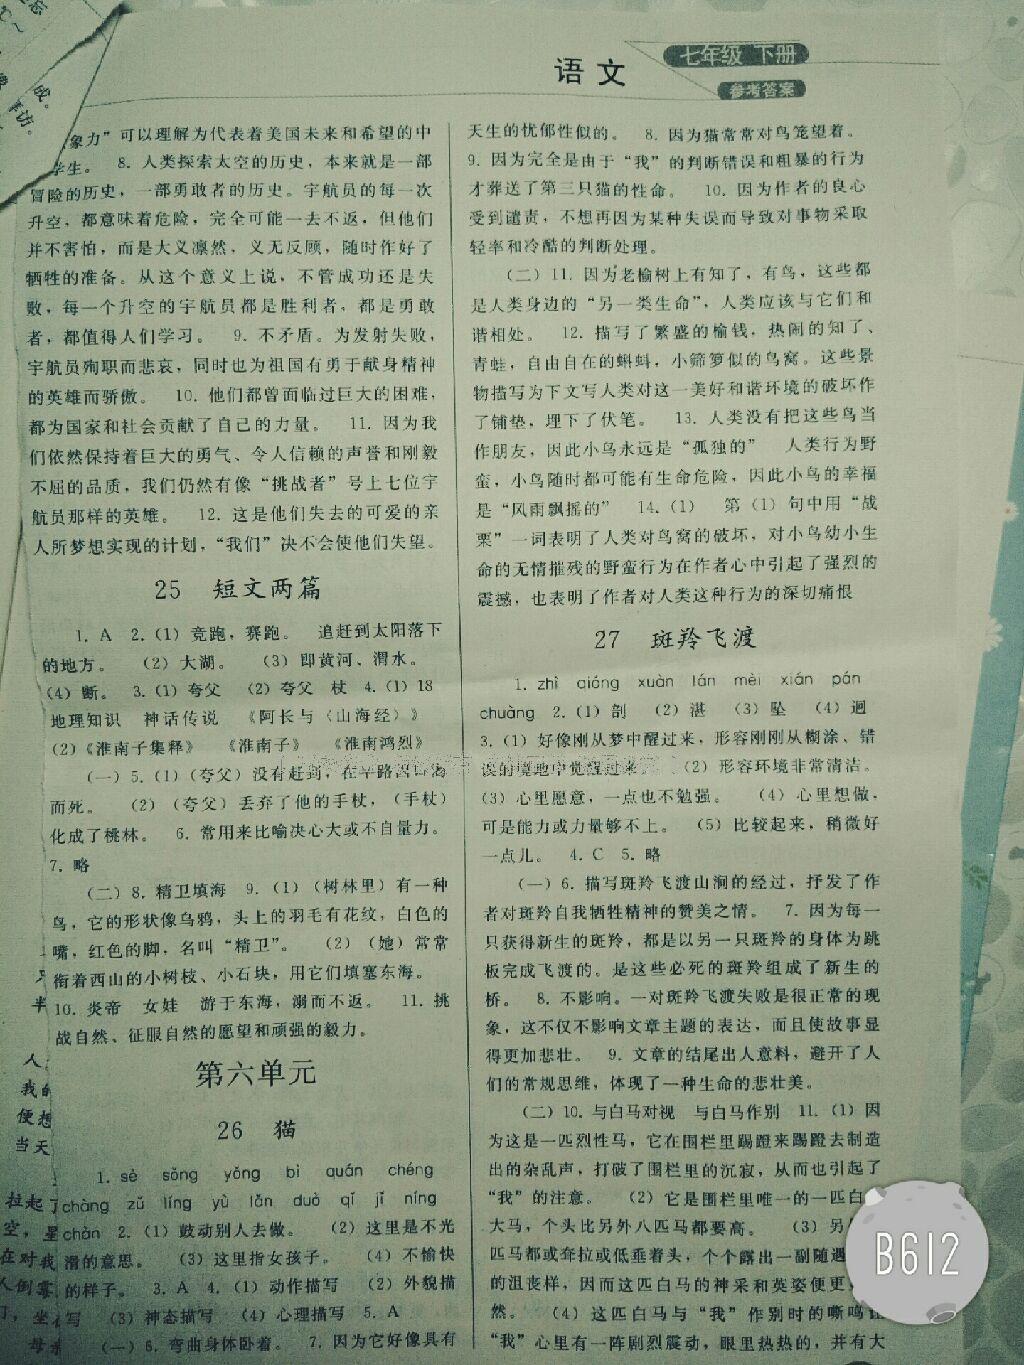 语文
七年级 下册
参考答案
成。
访。
象力”可以理解为代表着美国未来和希望的中
学生。 8. 人类探索太空的历史，本来就是一部
冒险的历史，一部勇敢者的历史。宇航员的每一次
升空，都意味着危险，完全可能一去不返，但他们
并不害怕，而是大义凛然，义无反顾，随时作好了
牺牲的准备。从这个意义上说，不管成功还是失
败，每一个升空的宇航员都是胜利者，都是勇敢
者，都值得人们学习。 9. 不矛盾。为发射失败，
宇航员殉职而悲哀，同时也为祖国有勇于献身精神
的英雄而骄傲。 10. 他们都曾面临过巨大的困难，
都为国家和社会贡献了自己的力量。 11. 因为我
们依然保持着巨大的勇气、令人信赖的声誉和刚毅
不屈的品质，我们仍然有像“挑战者”号上七位宇
航员那样的英雄。 12. 这是他们失去的可爱的亲
人所梦想实现的计划，“我们”决不会使他们失望。
25 短文两篇
1. A 2. (1) 竞跑，赛跑。 追赶到太阳落下
的地方。 (2) 大湖。 (3) 即黄河、渭水。
(4) 断。 3. (1) 夸父 (2) 夸父 杖 4. (1) 18
地理知识 神话传说 《阿长与〈山海经〉》
(2)《淮南子集释》 《淮南子》 《淮南鸿烈》
(一) 5. (1)（夸父）没有赶到，在半路因口渴
而死。 (2)（夸父）丢弃了他的手杖，（手杖）
化成了桃林。 6. 常用来比喻决心大或不自量力。
7. 略
(二) 8. 精卫填海 9. (1)（树林里）有一种
鸟，它的形状像乌鸦，头上的羽毛有花纹，白色的
嘴，红色的脚，名叫“精卫”。 (2)（她）常常
衔着西山的小树枝、小石块，用它们填塞东海。
10. 炎帝 女娃 游于东海，溺而不返。 11. 挑
战自然、征服自然的愿望和顽强的毅力。
第六单元
26 猫
1. sè sǒng yǒng bì quán chéng
chàng zǔ líng yù lǎn duò qī jǐ níng
chàn 2. (1) 鼓动别人去做。 (2) 这里是不光
滑的意思。 (3) 这里指女孩子。 (4) 不愉快
的样子。 3. A 4. (1) 动作描写 (2) 外貌描
写 (3) 神态描写 (4) 心理描写 5. A
(一) 6. 弯曲身体卧着。 7. 因为它好像具有
天生的忧郁性似的。 8. 因为猫常常对鸟笼望着。
9. 因为完全是由于“我”的判断错误和粗暴的行为
才葬送了第三只猫的性命。 10. 因为作者的良心
受到谴责，不想再因为某种失误而导致对事物采取
轻率和冷酷的判断处理。
(二) 11. 因为老榆树上有知了，有鸟，这些都
是人类身边的“另一类生命”，人类应该与它们和
谐相处。 12. 描写了繁盛的榆钱，热闹的知了、
青蛙，自由自在的蝌蚪，小筛箩似的鸟窝。这些景
物描写为下文写人类对这一美好和谐环境的破坏作
了铺垫，埋下了伏笔。 13. 人类没有把这些鸟当
作朋友，因此小鸟永远是“孤独的” 人类行为野
蛮，小鸟随时都可能有生命危险，因此小鸟的幸福
是“风雨飘摇的” 14. (1) 第 (1) 句中用“战
栗”一词表明了人类对鸟窝的破坏，对小鸟幼小生
命的无情摧残的野蛮行为在作者心中引起了强烈的
震撼，也表明了作者对人类这种行为的深切痛恨
27 斑羚飞渡
1. zhì qióng xuàn lán mèi xián pán
chuàng 2. (1) 剖 (2) 湛 (3) 坠 (4) 迴
3. (1) 好像刚从梦中醒过来，形容刚刚从糊涂、错
误的境地中觉醒过来 (2) 形容环境非常清洁。
(3) 心里愿意，一点也不勉强。 (4) 心里想做，
可是能力或力量够不上。 (5) 比较起来，稍微好
一点儿。 4. C 5. 略
(一) 6. 描写斑羚飞渡山涧的经过，抒发了作
者对斑羚自我牺牲精神的赞美之情。 7. 因为每一
只获得新生的斑羚，都是以另一只斑羚的身体为跳
板完成飞渡的。是这些必死的斑羚组成了新生的
桥。 8. 不影响。一对斑羚飞渡失败是很正常的现
象，这不仅不影响文章主题的表达，而且使故事显
得更加悲壮。 9. 文章的结尾出人意料，避开了人
们的常规思维，体现了一种生命的悲壮美。
(二) 10. 与白马对视 与白马作别 11. (1) 因
为这是一匹烈性马，它在围栏里踢蹬来踢蹬去制造
出的杂乱声，打破了围栏里的沉寂，从而也引起了
“我”的注意。 (2) 它是围栏里唯一的一匹白
大马，个头比另外八匹马都要高。 (3) 另
匹马都或耷拉或低垂着头，个个露出一副随遇
的沮丧样，因而这匹白马的神采和英姿便更
然。 (4) 这匹白马与“我”作别时的嘶鸣让
“我”心里有一阵剧烈震动，眼里热热的，并有大
半
人
我的
便想
当天
拉起了
空，星
在对我
人倒霉
丁，坐
母亲
B612